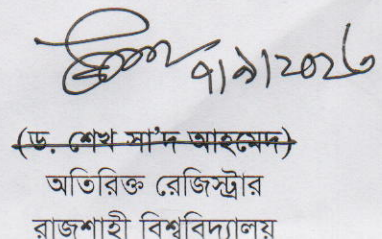 ৭/৯/২০২৬
(ড. শেখ সা'দ আহমেদ)
অতিরিক্ত রেজিস্ট্রার
রাজশাহী বিশ্ববিদ্যালয়